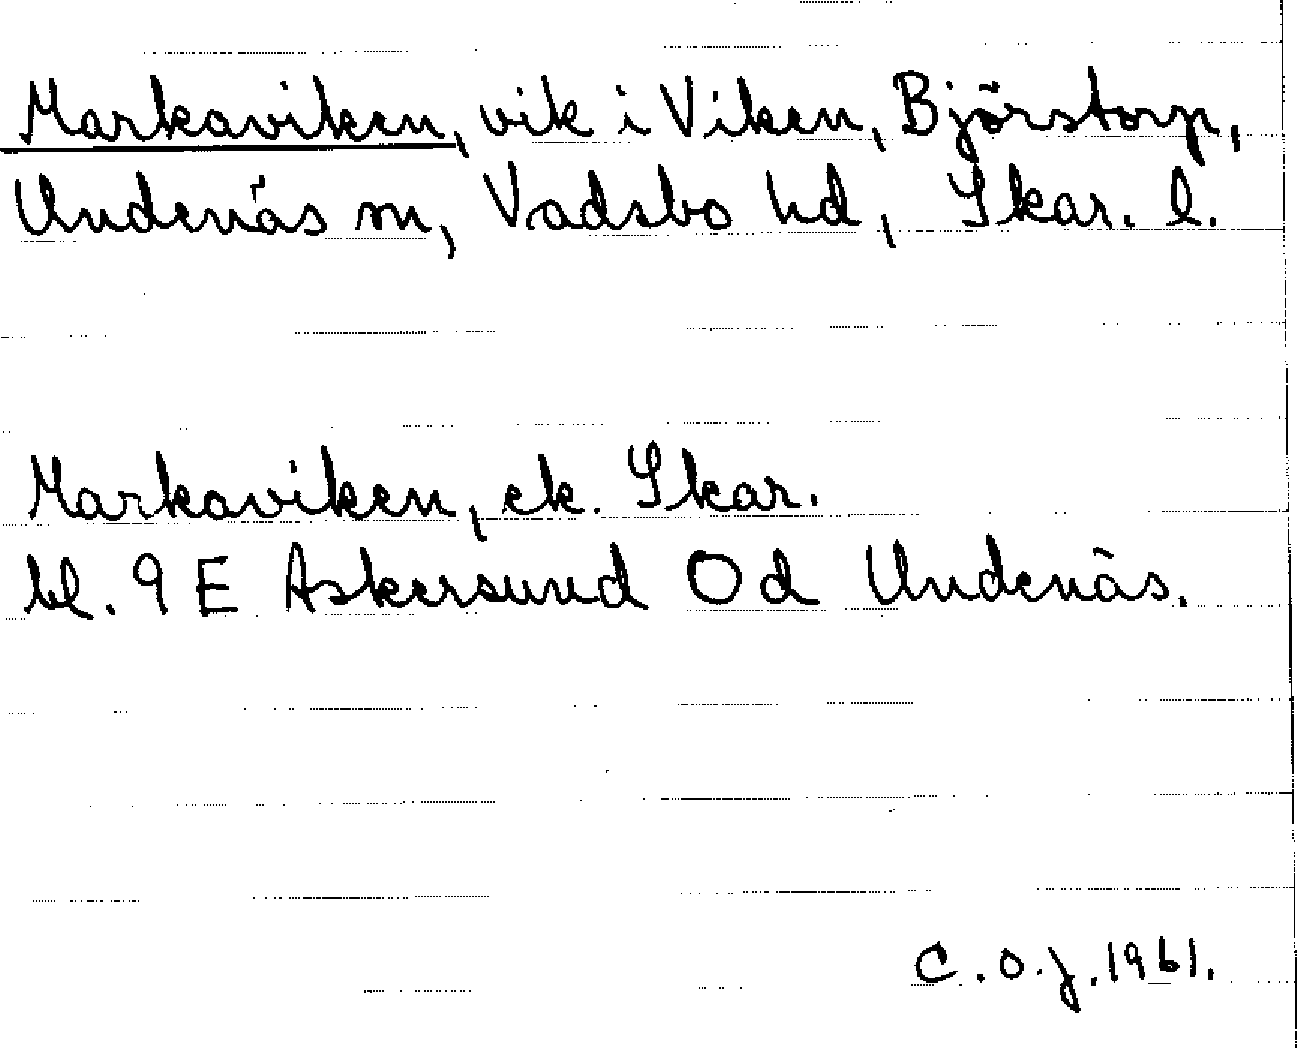 Markaviken, vik i Viken, Björstorp,
Undenäs sn, Vadsbo hd, Skar. l.
Markaviken, ek. Skar.
bl. 9 E Askersund Od Undenäs.
C.O.J. 1961.